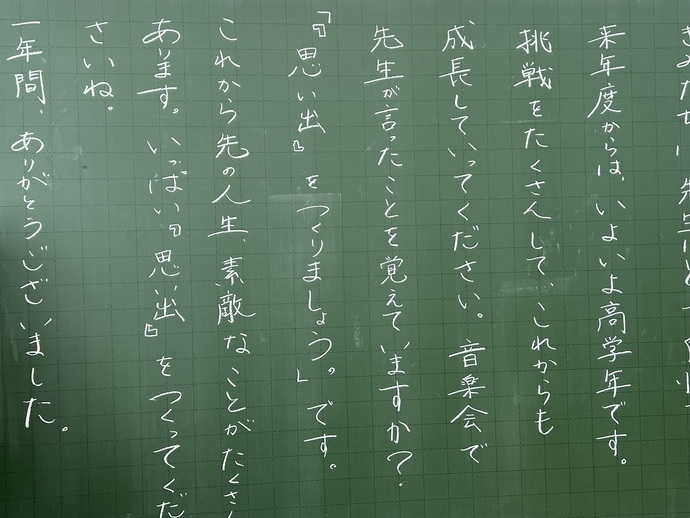 来年度からは、いよいよ高学年です。
挑戦をたくさんして、これからも
成長していってください。音楽会で
先生が言ったことを覚えていますか？
「『思い出』をつくりましょう。」です。
これから先の人生、素敵なことがたくさん
あります。いっぱい『思い出』をつくってくだ
さいね。
一年間、ありがとうございました。